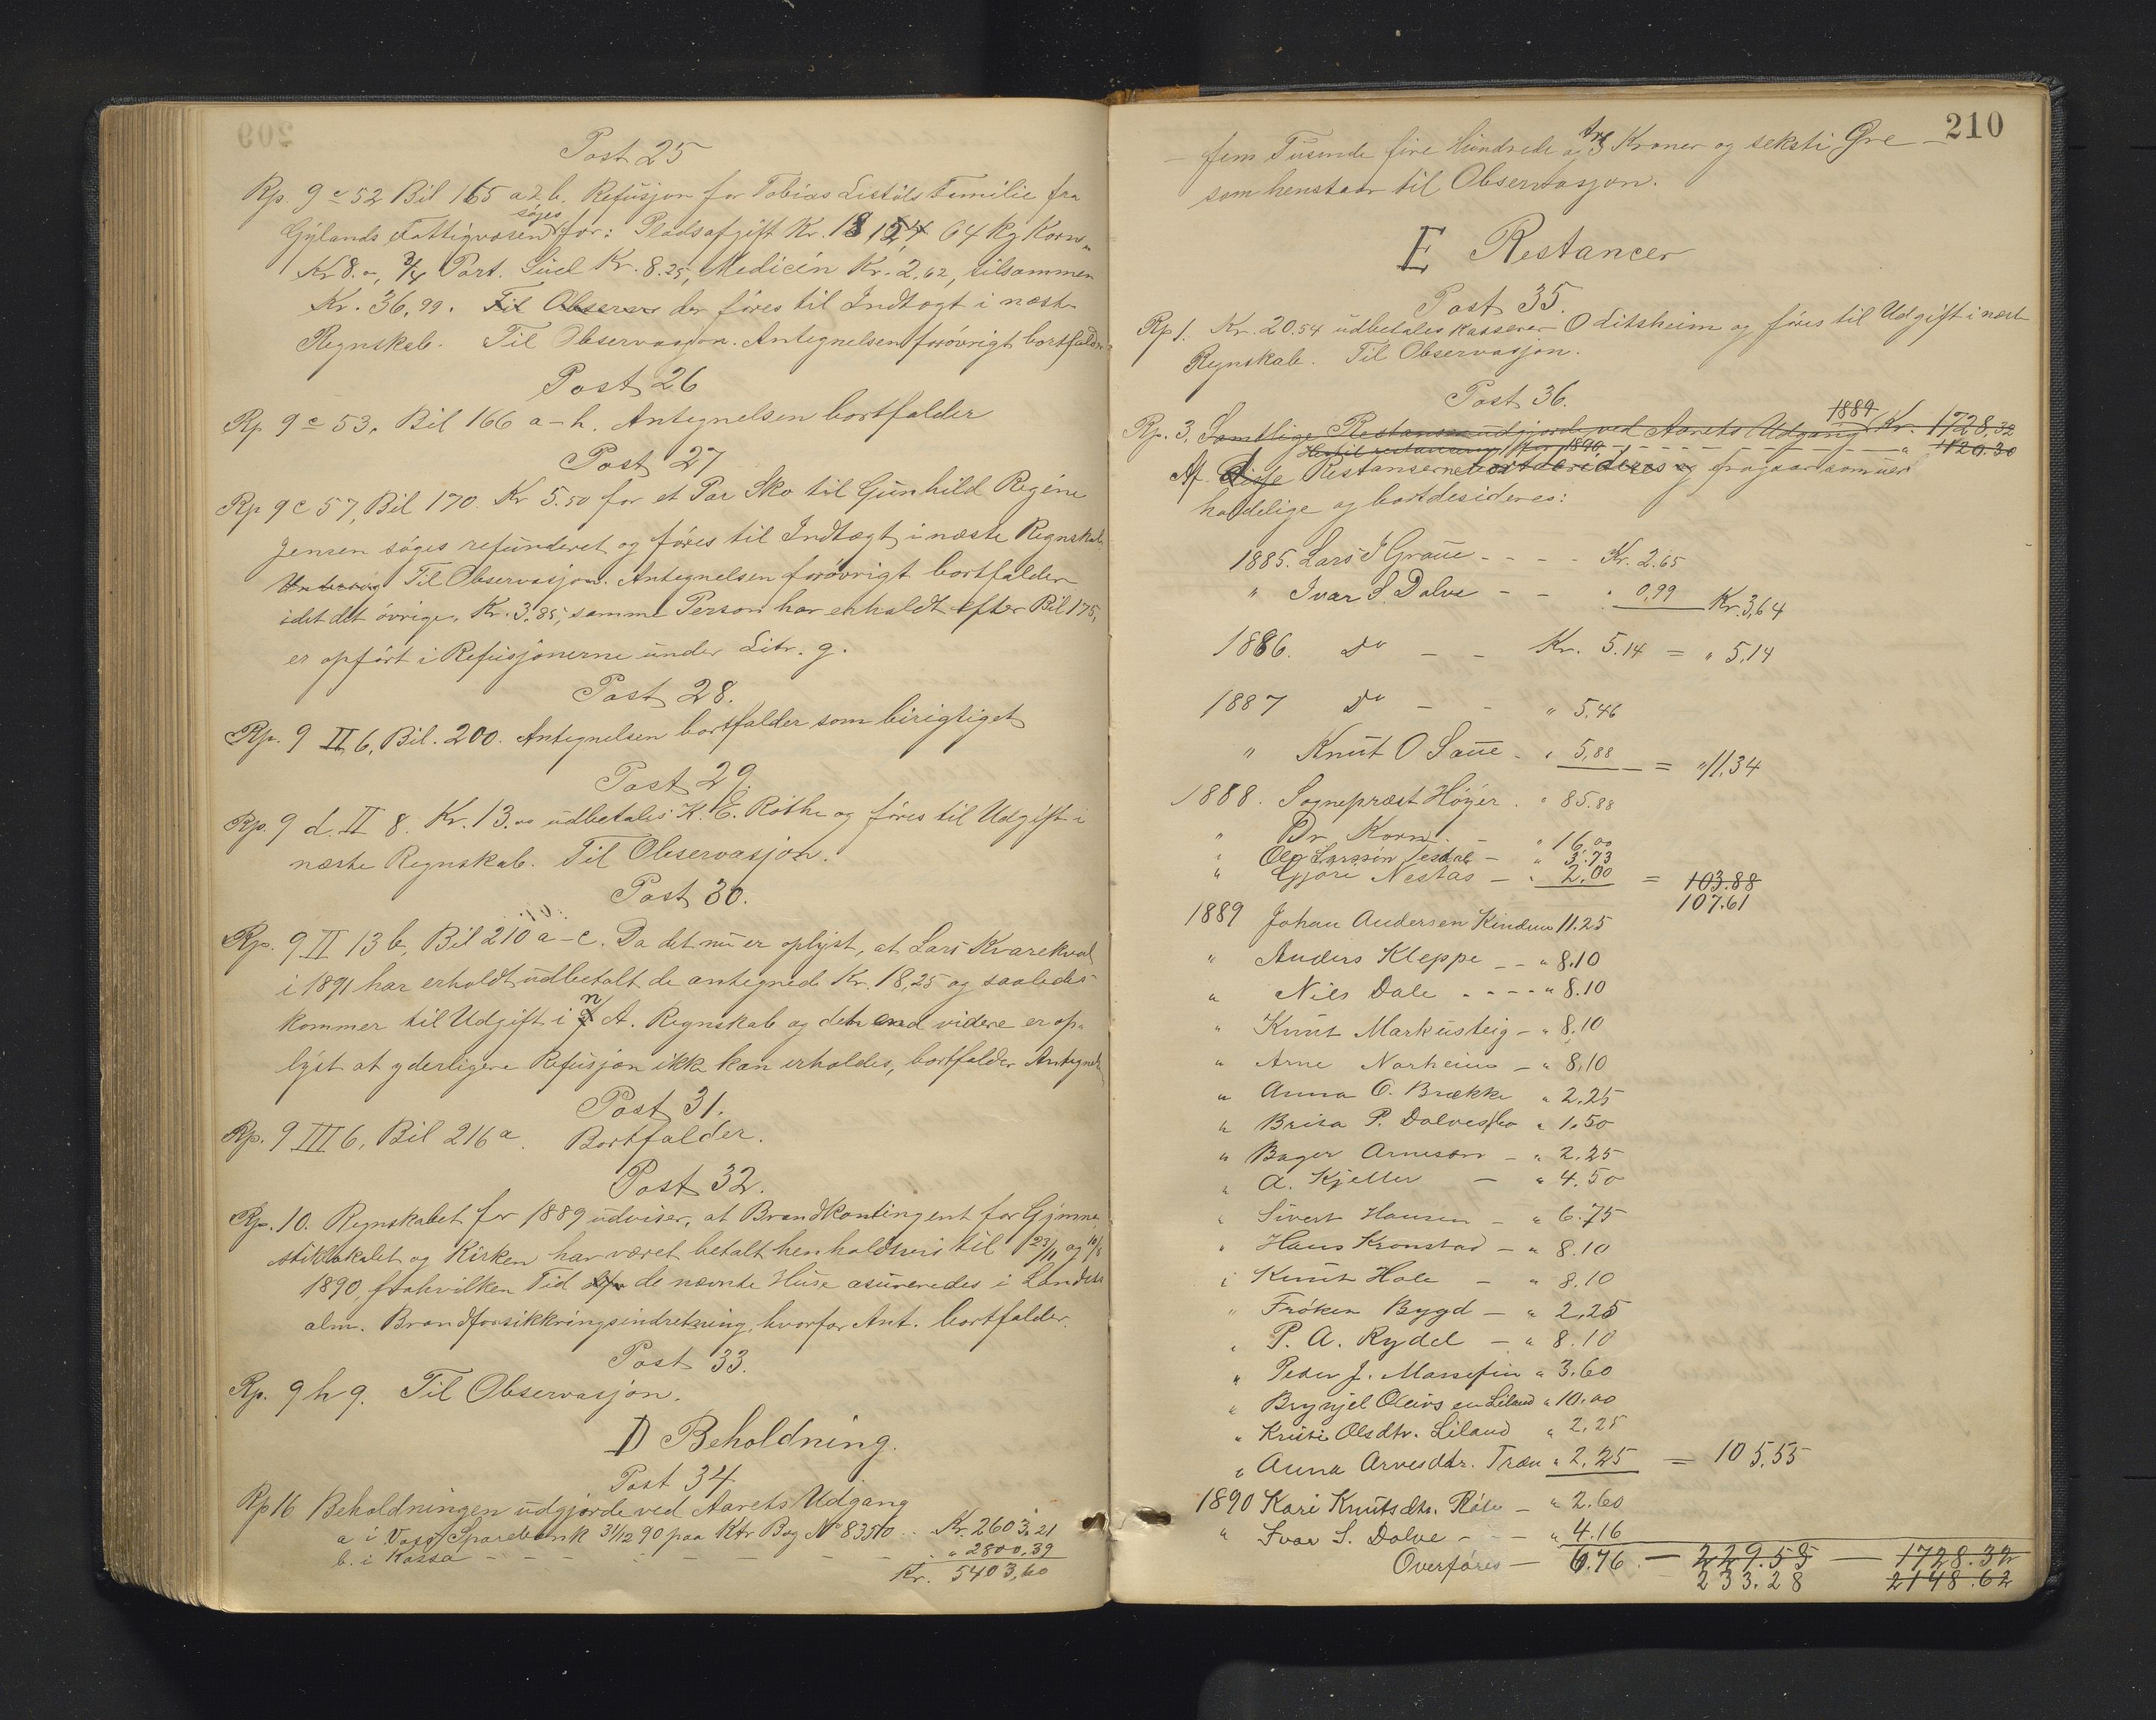 Post 25
Rp. 9 c 52 Bil 165 a & b. Refusjon for Tobias Listöls Familie fra
Gylands Fattigvæsen søges for: Pladsafgift Kr. 18,12, 64 kg Korn
Kr 8.00, 3/4 Part. Suel Kr. 8.25, Medicin Kr. 2.62, tilsammen
Kr. 36,99. Til Observa der föres til Indtægt i næste
Regnskab. Til Observasjon. Antegnelsen forøvrigt bortfalder
Post 26
Rp 9 c 53. Bil 166 a-h. Antegnelsen bortfalder
Post 27
Rp 9 c 57, Bil 170. Kr 5.50 for et Par Sko til Gunhild Regine
Jensen søges refunderet og föres til Indtægt i næste Regnskab.
Til Observasjon. Antegnelsen forøvrigt bortfalder
idet det øvrige, Kr. 3.85, samme Person har erholdt efter Bil 175,
er opført i Refusjonerne under Litr. g.
Post 28.
Rp. 9 II 6, Bil. 200. Antegnelsen bortfalder som birigtiget
Post 29.
Rp. 9 d. II 8. Kr. 13.00 udbetales K. E. Rothe og föres til Udgift i
næste Regnskab. Til Observasjon.
Post 30.
Rp. 9 II 13 b, Bil 210 a-c. Da det nu er oplyst, at Lars Kvarekval
i 1891 har erholdt udbetalt de antegnede Kr. 18,25 og saaledes
kommer til Udgift i n A. Regnskab og det end videre er op-
lyst at yderligere Refusjon ikke kan erholdes, bortfalder Antegnels
Post 31.
Rp. 9 III 6, Bil 216 a. Bortfalder.
Post 32.
Rp. 10. Regnskabet for 1889 udviser, at Brandkontingent for Gymna-
stiklokalet og Kirken har været betalt henholdsvis til 23/11 og 10/8
1890, fra hvilken Tid de nævnte Huse asureredes i Landets
alm. Brandforsikkringsindretning, hvorfor Ant. bortfalder.
Post 33.
Rp. 9 h 9. Til Observasjon.
D Beholdning.
Post 34
Rp 16 Beholdningen udgjorde ved Aarets Udgang
a i Voss Sparebank 31/12 90 paa Ktr Bog No 83510 .. Kr. 2603,21
b. i Kassa - - - - - - " 2800,39
Kr. 5403,60
210
- fem Tusinde fire Hundrede og tre Kroner og seksti Øre -
som henstaar til Observasjon.
E Restancer
Post 35.
Rp 1. Kr. 20.54 udbetales Kasserer O Litsheim og föres til Udgift i næste
Regnskab. Til Observasjon.
Post 36.
Rp. 3. Samtlige Restanser udgjorde ved Aarets Udgang 1889 Kr. 1728,32
Hertil restanserne for 1890 - - - - " 420.30
Af disse Restanserne bortdesideres og fragaar som uer
holdelige og bortdesideres:
1885. Lars I Graue - - - - Kr. 2.65
" Ivar S. Dolve - - " 0,99 Kr. 3,64
1886. Do - - Kr. 5.14 = " 5,14
1887 Do - - " 5,46
" Knut O Saue - " 5,88 = " 11,34
1888. Sognepræst Höyer. " 85.88
" Dr Korn. - " 16,00
" Ole Larssön Tesdal - " 3.73
" Gjøri Nestas - " 2,00 = 103.88
107.61
1889 Johan Andersen Kindem 11.25
" Anders Kleppe - - " 8.10
" Nils Dale - - - - " 8.10
" Knut Markusteig - " 8.10
" Arne Norheim - " 8.10
" Anna O. Brække " 2.25
" Brita P. Dolveslbo " 1.50
" Bager Arneson - " 2.25
" A. Kjeller - " 4.50
" Sivert Hansen - " 6.75
" Hans Kronstad - " 8.10
" Knut Hole - " 8.10
" Frøken Bygd - " 2,25
" P. A. Rydel - " 8.10
" Peder J. Massefin " 3.60
" Brynjel Oleivsen Liland " 10.00
" Kristi Olsdtr. Liland " 2,25
" Anna Arvesdtr. Træn " 2.25 = 105,55
1890 Kari Knutsdtr. Röte - " 2.60
" Ivar S. Dolve - - - " 4.16
Overföres - 6.76 - 229.55 - 1728.32
233.28 2148.62